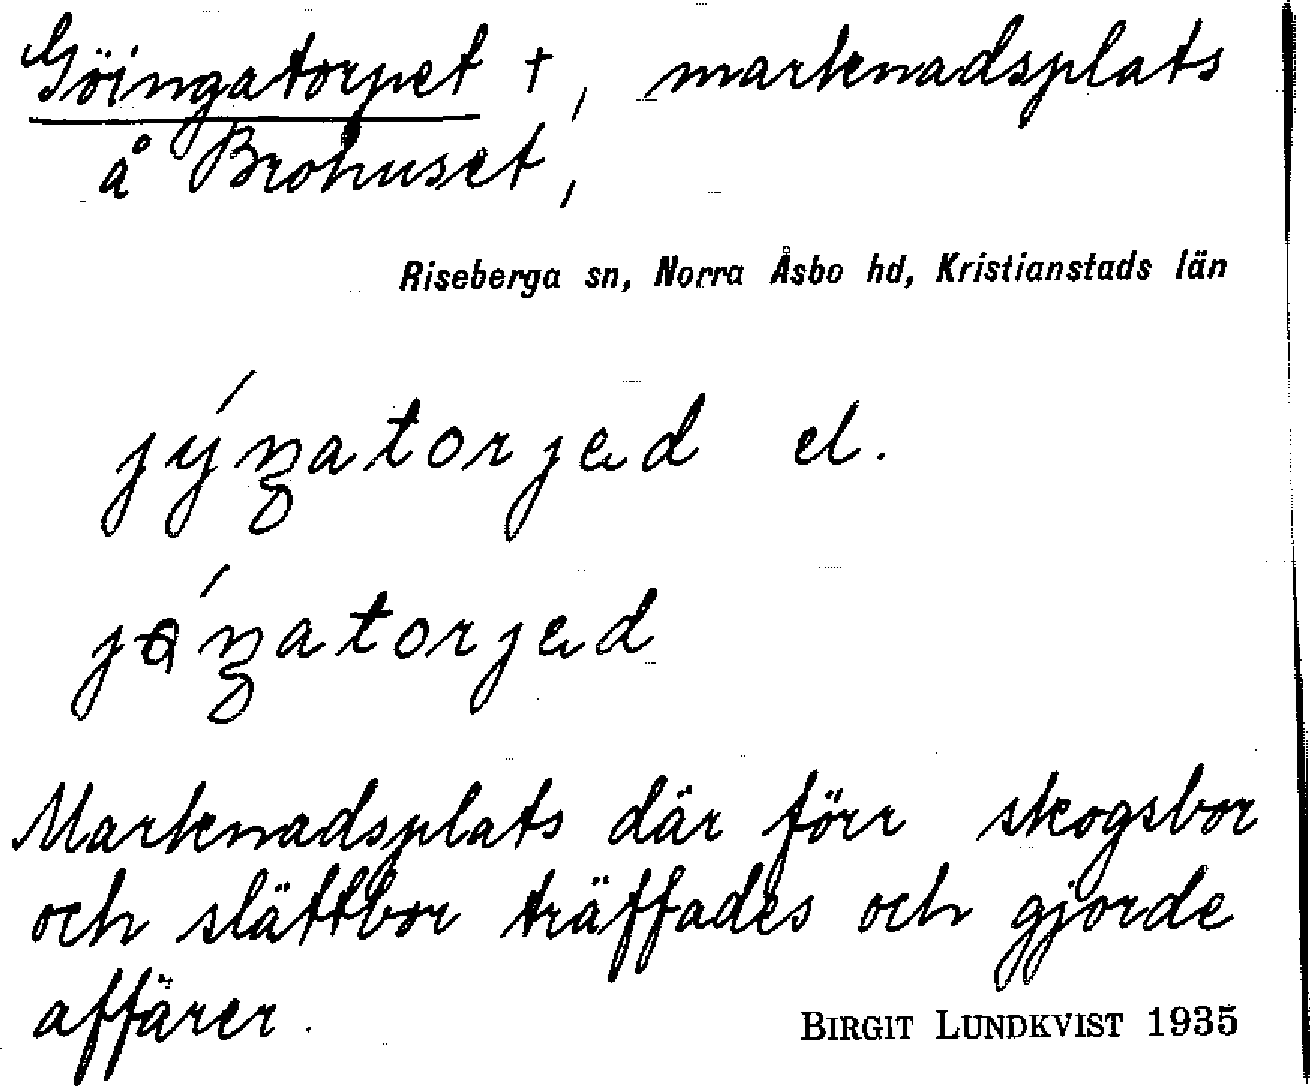 Göingatorpet †, marknadsplats
å Brohuset,
Riseberga sn, Norra Åsbo hd, Kristianstads län
el.
Marknadsplats där förr skogsbor
och slättbor träffades och gjorde
affärer.
BIRGIT LUNDKVIST 1935